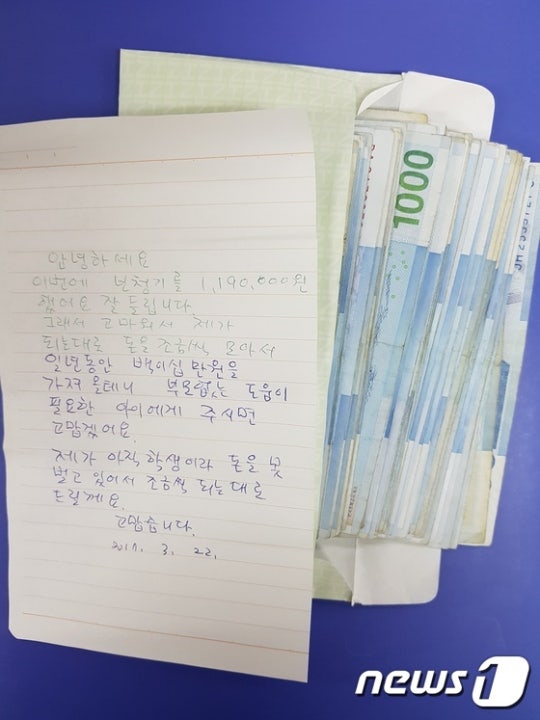 안녕하세요
이번에 보청기를 1,190,000원
했어요 잘 들립니다.
그래서 고마워서 제가
되는대로 돈을 조금씩 모아서
일년동안 백이십 만원을
가져 올테니 부모없는 도움이
필요한 아이에게 주시면
고맙겠어요.
제가 아직 학생이라 돈을 못
벌고 있어서 조금씩 되는대로
드릴께요.
고맙습니다.
2017. 3. 22.
1000
news1